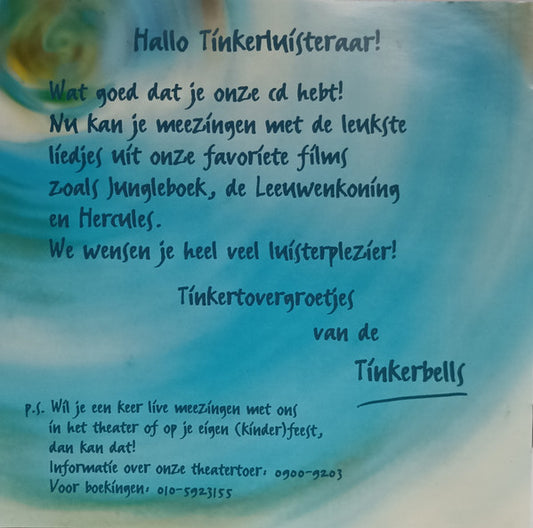 Hallo Tinkerluisteraar!
Wat goed dat je onze cd hebt!
Nu kan je meezingen met de leukste
liedjes uit onze favoriete films
zoals Jungleboek, de Leeuwenkoning
en Hercules.
We wensen je heel veel luisterplezier!
Tinkertovergroetjes
van de
Tinkerbells
p.s. Wil je een keer live meezingen met ons
in het theater of op je eigen (kinder)feest,
dan kan dat!
Informatie over onze theatertoer: 0900-9203
Voor boekingen: 010-5923155